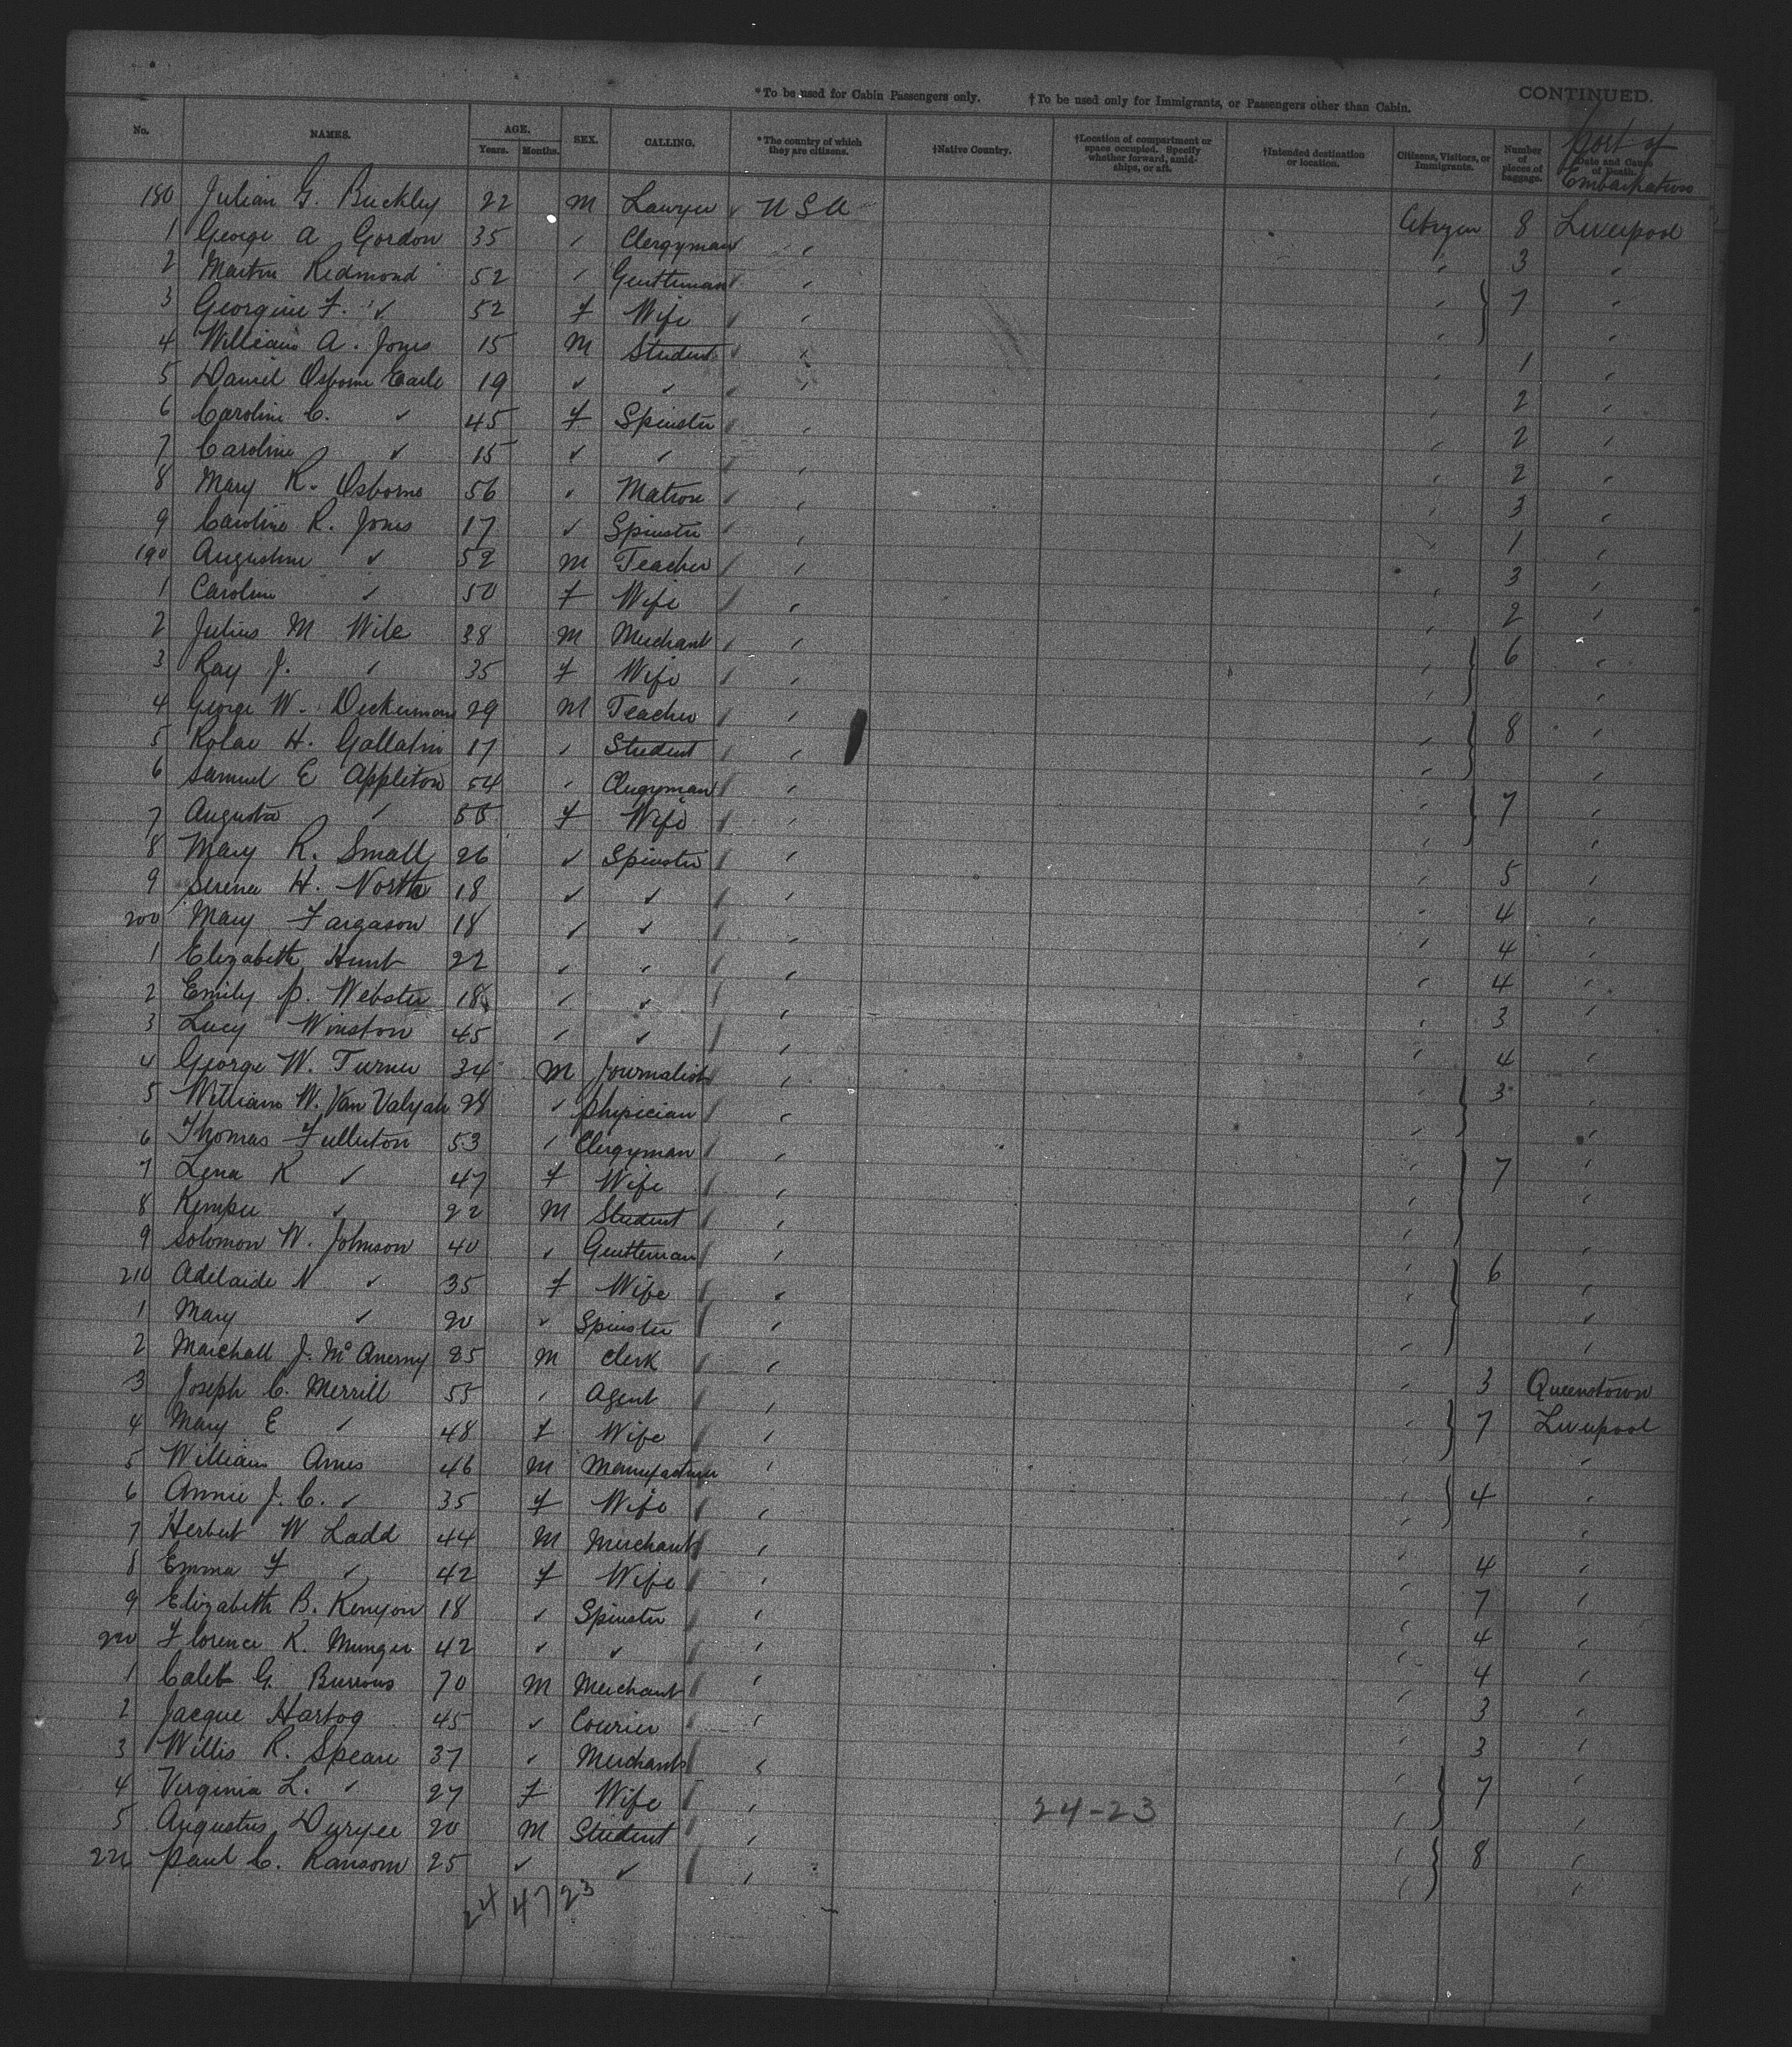 CONTINUED.
*To be used for Cabin Passengers only. †To be used only for Immigrants, or Passengers other than Cabin.
Port of Embarkation
No. NAMES. AGE. Years. Months. SEX. CALLING. *The country of which they are citizens. †Native Country. †Location of compartment or space occupied. Specify whether forward, amid-ships, or aft. †Intended destination or location. Citizens, Visitors, or Immigrants. Number of pieces of baggage. Date and Cause of Death.
180 Julian G. Buckley 22 M Lawyer U S A Citizen 8 Liverpool
1 George A Gordon 35 " Clergyman " " 3 "
2 Martin Redmond 52 " Gentleman " " 7 "
3 Georgine F. " 52 F Wife " " "
4 William A. Jones 15 M Student " " 1 "
5 Daniel Osborne Earle 19 " " " " 2 "
6 Caroline C. " 45 F Spinster " " 2 "
7 Caroline " 15 " " " " 2 "
8 Mary R. Osborne 56 " Matron " " 3 "
9 Caroline R. Jones 17 " Spinster " " 1 "
190 Augustine " 52 M Teacher " " 3 "
1 Caroline " 50 F Wife " " 2 "
2 Julius M Wile 38 M Merchant " " 6 "
3 Ray J. " 35 F Wife " " "
4 George W. Dickerman 29 M Teacher " " 8 "
5 H. Gallatin 17 " Student " " "
6 Samuel E Appleton 54 " Clergyman " " 7 "
7 Augusta " 55 F Wife " " "
8 Mary R. Small 26 " Spinster " " 5 "
9 Serena H. North 18 " " " " 4 "
200 Mary Fargason 18 " " " " 4 "
1 Elizabeth Hunt 22 " " " " 4 "
2 Emily P. Webster 18 " " " " 3 "
3 Lucy Winston 45 " " " " 4 "
4 George W. Turner 34 M Journalist " " 3 "
5 William W. Van Valyah 28 " Physician " " "
6 Thomas Fullerton 53 " Clergyman " " 7 "
7 Lena K " 47 F Wife " " "
8 Kemper " 22 M Student " " "
9 Solomon W. Johnson 40 " Gentleman " " 6 "
210 Adelaide N " 35 F Wife " " "
1 Mary " 20 " Spinster " " "
2 Marshall J. McAnerny 25 M Clerk " " 3 Queenstown
3 Joseph C. Merrill 55 " Agent " " 7 Liverpool
4 Mary E " 48 F Wife " " "
5 William Ames 46 M Manufacturer " " 4 "
6 Annie J. C. " 35 F Wife " " "
7 Herbert W Ladd 44 M Merchant " " 4 "
8 Emma F " 42 F Wife " " 7 "
9 Elizabeth B. Kenyon 18 " Spinster " " 4 "
220 Florence K. Munger 42 " " " " 4 "
1 Caleb G. Burrows 70 M Merchant " " 3 "
2 Jacque Hartog 45 " Courier " " 3 "
3 Willis R. Speare 37 " Merchant " " 7 "
4 Virginia L. " 27 F Wife " " "
5 Augustus Duryee 20 M Student " " 8 "
226 Paul C. Ransom 25 " " " " "
24-23
24 47 23